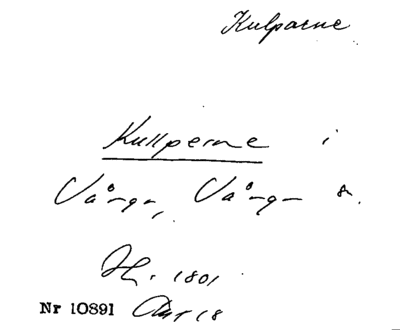 Kulparne
Kullperne i
Vånga, Vånga s.
Hl. 1801
Nr 10891